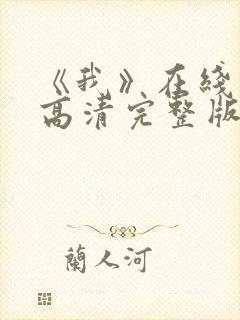 《我》在綫
高清完整版
蘭人河